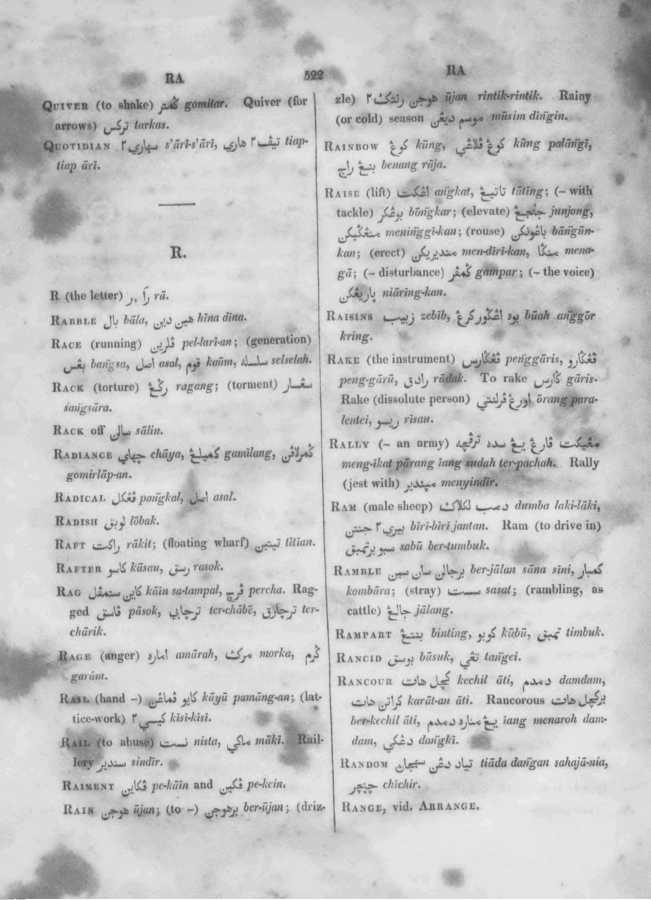 RA
522
RA
QUIVER (to shake) گمتر gomitar. Quiver (for
arrows) ترکس tarkas.
QUOTIDIAN سهاري٢ s'ārī-s'āri, تيف٢ هاري tiap-
tiap āri.
R.
R (the letter) ر, را rā.
RABBLE بال bāla, هين دين hīna dīna.
RACE (running) ڤلرين pel-lari-an; (generation)
بڠس bangsa, اصل asal, قوم kaūm, سلسله selselah.
RACK (torture) ragang; (torment)
sangsāra.
RACK off سالن sālin.
RADIANCE چهاي chāya, گميلڠ gamilang,
gomirlāp-an.
RADICAL ڤڠکل pangkal, اصل asal.
RADISH لوبق lōbak.
RAFT راکت rākit; (floating wharf) تيتين tītian.
RAFTER کاسو kāsau, رسق rasok.
RAG کاين ستمڤل kāin sa-tampal, ڤرچ percha. Rag-
ged ڤاسق pāsok, ترچابي ter-chābē, ترچارق ter-
chārik.
RAGE (anger) اماره amārah, مرک morka, گرم
garam.
RAIL (hand –) کايو ڤماڠن kāyū pamāng-an; (lat-
tice-work) کيسي٢ kisi-kisi.
RAIL (to abuse) نست nista, ماکي mākī. Rail-
lery سندير sindīr.
RAIMENT ڤکاين pe-kāin and ڤکين pe-kein.
RAIN هوجن ūjan; (to –) برهوجن ber-ūjan; (driz-
zle) هوجن رنتک٢ ūjan rintik-rintik. Rainy
(or cold) season موسم ديڠن mūsim dīngin.
RAINBOW کوڠ kūng, کوڠ ڤلاڠي kūng palāngī,
بنڠ راج benang rāja.
RAISE (lift) اڠکت angkat, تاتيڠ tāting; (– with
tackle) بوڠکر bōngkar; (elevate) جنجڠ junjong,
منڠگيکن meninggi-kan; (rouse) باڠونکن bāngūn-
kan; (erect) منديريکن men-dīrī-kan, منگا mena-
gā; (– disturbance) گمڤر gampar; (– the voice)
ياريڠکن niāring-kan.
RAISINS زبيب zebīb, بوه اڠگور کرڠ būah anggōr
kring.
RAKE (the instrument) ڤڠگارس penggāris, ڤڠگارو
peng-gārū, رادق rādak. To rake گارس gāris.
Rake (dissolute person) اورڠ ڤرلنتي ōrang para-
lentei, ريسو risau.
RALLY (– an army) مڠيکت ڤارڠ يڠ سده ترڤچه
meng-ikat pārang iang sudah ter-pachah. Rally
(jest with) ميندير menyindīr.
RAM (male sheep) دمب لکلاک dumba laki-lāki,
بيري٢ جنتن bīri-bīri jantan. Ram (to drive in)
سبو برتمبق sabū ber-tumbuk.
RAMBLE برجالن سان سين ber-jālan sāna sīni, کمبار
kombāra; (stray) سست sasat; (rambling, as
cattle) جالڠ jālang.
RAMPART بنتڠ binting, کوبو kūbū, تمبق timbuk.
RANCID بوسق būsuk, تڠي tangei.
RANCOUR کچل هات kechil āti, دمدم damdam,
کراتن هات karāt-an āti. Rancorous برکچل هات
ber-kechil āti, يڠ مناره دمدم iang menaroh dam-
dam, دڠکي dangkī.
RANDOM تياد دڠن سهجان tiāda dangan sahajā-nia,
چيچر chichir.
RANGE, vid. ARRANGE.